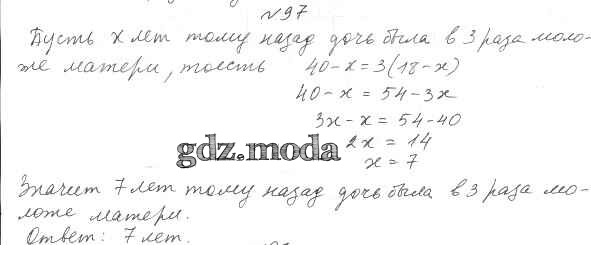 №97
Пусть x лет тому назад дочь была в 3 раза моло-
же матери, тоесть 40-x=3(18-x)
40-x=54-3x
3x-x=54-40
2x=14
gdz.moda
x=7
Значит 7 лет тому назад дочь была в 3 раза мо-
ложе матери.
Ответ: 7 лет.